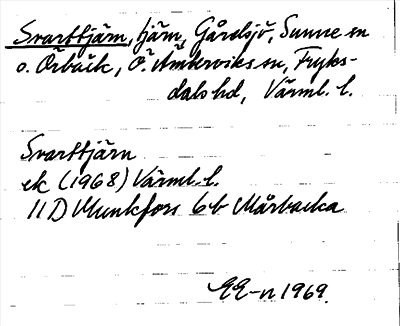 Svarttjärn, tjärn, Gårdsjö, Sunne sn
o. Örbäck, Ö. Ämterviks sn, Fryks-
dals hd, Värml. l.
Svarttjärn
ek (1968) Värml. l.
11D Munkfors 6b Mårbacka
EE-n 1969.